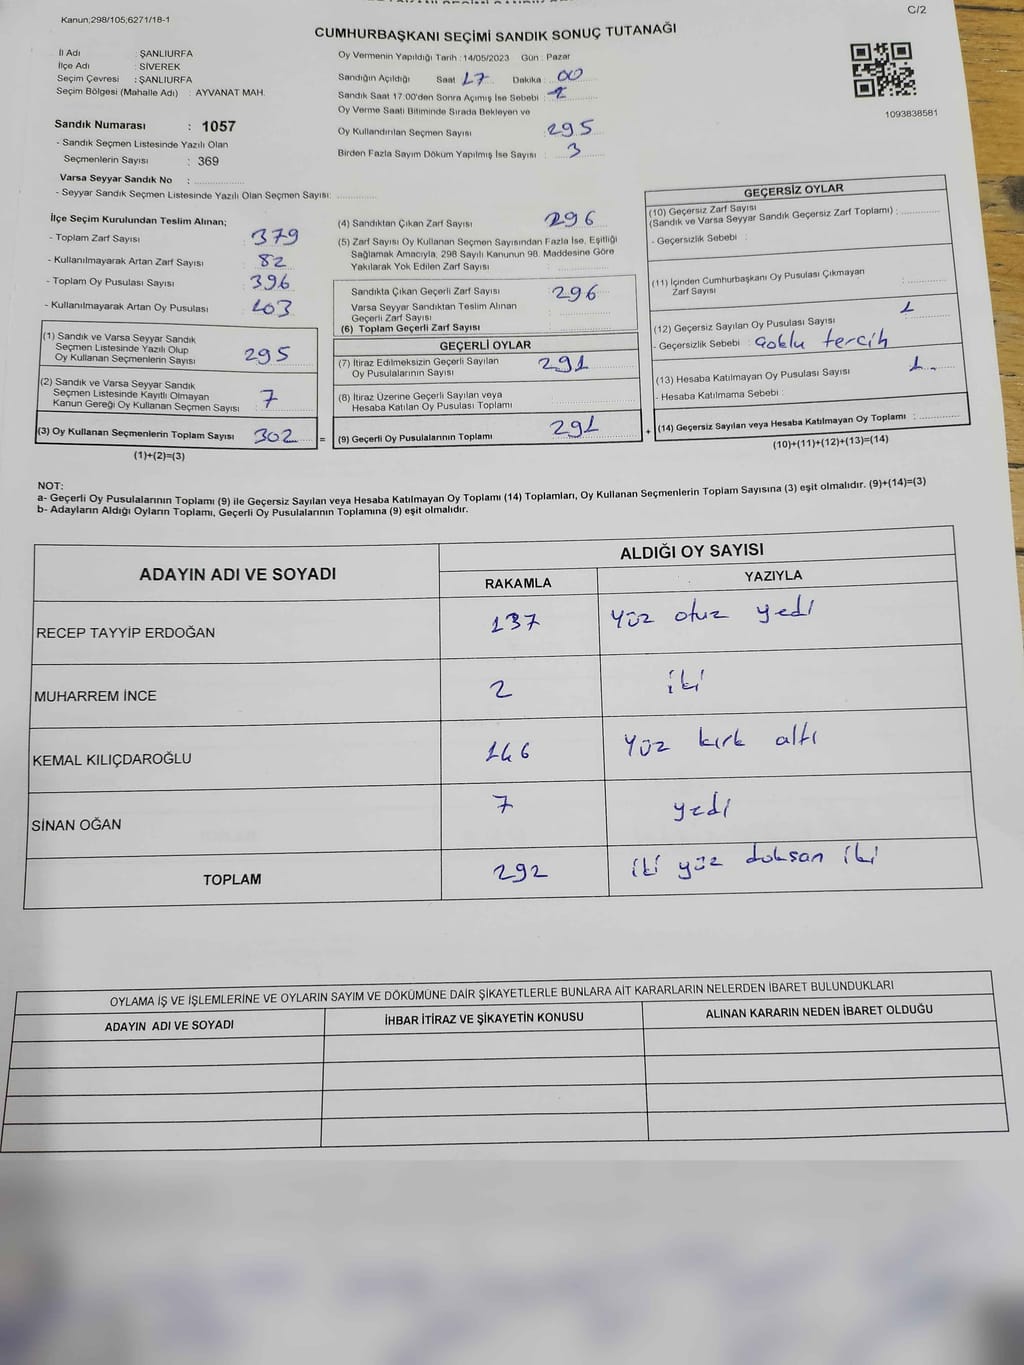 C/2
Kanun;298/105;6271/18-1
CUMHURBAŞKANI SEÇİMİ SANDIK SONUÇ TUTANAĞI
İl Adı : ŞANLIURFA
İlçe Adı : SİVEREK
Seçim Çevresi : ŞANLIURFA
Seçim Bölgesi (Mahalle Adı) : AYVANAT MAH.
Sandık Numarası : 1057
- Sandık Seçmen Listesinde Yazılı Olan
Seçmenlerin Sayısı : 369
Varsa Seyyar Sandık No :
- Seyyar Sandık Seçmen Listesinde Yazılı Olan Seçmen Sayısı:
Oy Vermenin Yapıldığı Tarih : 14/05/2023 Gün : Pazar
Sandığın Açıldığı Saat 17 Dakika : 00
Sandık Saat 17:00'den Sonra Açımış İse Sebebi :
Oy Verme Saati Bitiminde Sırada Bekleyen ve
Oy Kullandırılan Seçmen Sayısı : 295
Birden Fazla Sayım Döküm Yapılmış İse Sayısı : 3
1093838581
İlçe Seçim Kurulundan Teslim Alınan;
- Toplam Zarf Sayısı : 379
- Kullanılmayarak Artan Zarf Sayısı : 82
- Toplam Oy Pusulası Sayısı : 396
- Kullanılmayarak Artan Oy Pusulası : 103
(1) Sandık ve Varsa Seyyar Sandık
Seçmen Listesinde Yazılı Olup
Oy Kullanan Seçmenlerin Sayısı : 295
(2) Sandık ve Varsa Seyyar Sandık
Seçmen Listesinde Kayıtlı Olmayan
Kanun Gereği Oy Kullanan Seçmen Sayısı : 7
(3) Oy Kullanan Seçmenlerin Toplam Sayısı : 302 =
(1)+(2)=(3)
(4) Sandıktan Çıkan Zarf Sayısı : 296
(5) Zarf Sayısı Oy Kullanan Seçmen Sayısından Fazla İse, Eşitliği
Sağlamak Amacıyla, 298 Sayılı Kanunun 98. Maddesine Göre
Yakılarak Yok Edilen Zarf Sayısı :
Sandıkta Çıkan Geçerli Zarf Sayısı : 296
Varsa Seyyar Sandıktan Teslim Alınan
Geçerli Zarf Sayısı :
(6) Toplam Geçerli Zarf Sayısı :
GEÇERLİ OYLAR
(7) İtiraz Edilmeksizin Geçerli Sayılan
Oy Pusulalarının Sayısı : 291
(8) İtiraz Üzerine Geçerli Sayılan veya
Hesaba Katılan Oy Pusulası Toplamı :
(9) Geçerli Oy Pusulalarının Toplamı : 291 +
GEÇERSİZ OYLAR
(10) Geçersiz Zarf Sayısı
(Sandık ve Varsa Seyyar Sandık Geçersiz Zarf Toplamı) :
- Geçersizlik Sebebi :
(11) İçinden Cumhurbaşkanı Oy Pusulası Çıkmayan
Zarf Sayısı :
(12) Geçersiz Sayılan Oy Pusulası Sayısı : 1
- Geçersizlik Sebebi : Çoklu tercih
(13) Hesaba Katılmayan Oy Pusulası Sayısı : 1
- Hesaba Katılmama Sebebi :
(14) Geçersiz Sayılan veya Hesaba Katılmayan Oy Toplamı :
(10)+(11)+(12)+(13)=(14)
NOT:
a- Geçerli Oy Pusulalarının Toplamı (9) ile Geçersiz Sayılan veya Hesaba Katılmayan Oy Toplamı (14) Toplamları, Oy Kullanan Seçmenlerin Toplam Sayısına (3) eşit olmalıdır. (9)+(14)=(3)
b- Adayların Aldığı Oyların Toplamı, Geçerli Oy Pusulalarının Toplamına (9) eşit olmalıdır.
ADAYIN ADI VE SOYADI ALDIĞI OY SAYISI
RAKAMLA YAZIYLA
RECEP TAYYİP ERDOĞAN 137 Yüz otuz yedi
MUHARREM İNCE 2 iki
KEMAL KILIÇDAROĞLU 146 Yüz kırk altı
SİNAN OĞAN 7 yedi
TOPLAM 292 iki yüz doksan iki
OYLAMA İŞ VE İŞLEMLERİNE VE OYLARIN SAYIM VE DÖKÜMÜNE DAİR ŞİKAYETLERLE BUNLARA AİT KARARLARIN NELERDEN İBARET BULUNDUKLARI
ADAYIN ADI VE SOYADI İHBAR İTİRAZ VE ŞİKAYETİN KONUSU ALINAN KARARIN NEDEN İBARET OLDUĞU